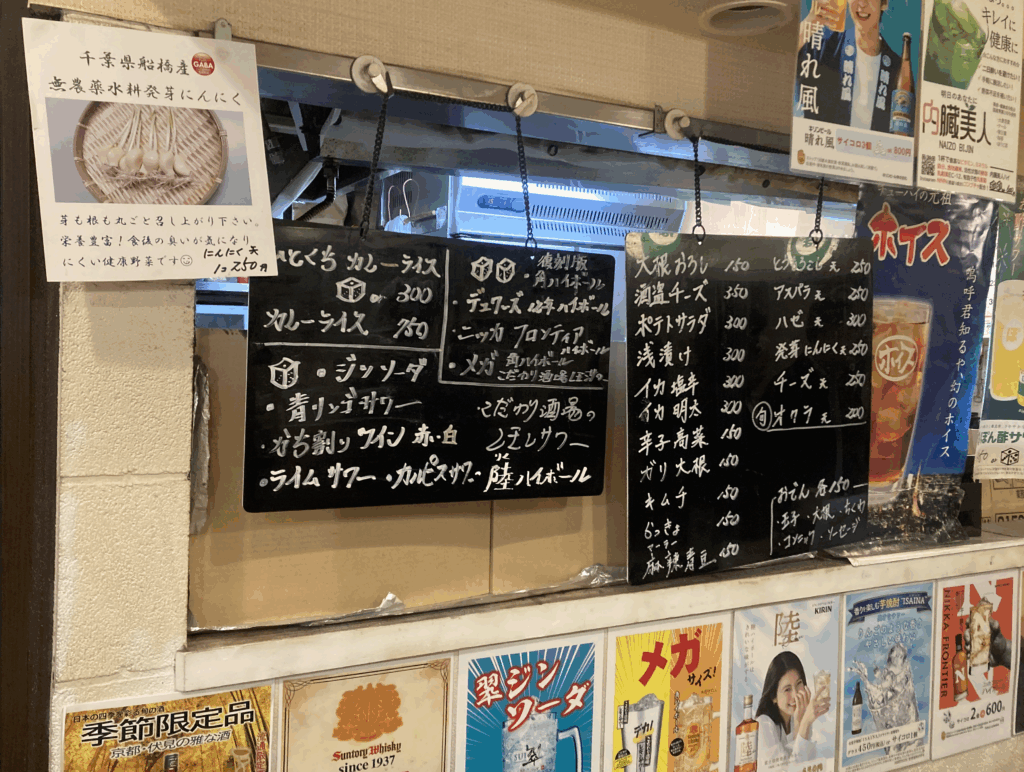 千葉県船橋産
GABA
無農薬水耕発芽にんにく
芽も根も丸ごと召し上がり下さい。
栄養豊富！食後の臭いが気になり
にくい健康野菜です
にんにく天
1コ250円
ひとくちカレーライス
or 300
カレーライス 750
・ジンソーダ
・青リンゴサワー
・かち割りワイン 赤・白
・ライムサワー ・カルピスサワー
・復刻版
角ハイボール
・デュワーズ 12年ハイボール
・ニッカ フロンティア
ハイボール
・メガ 角ハイボール
こだわり酒場
・こだわり酒場の
レモンサワー
陸ハイボール
大根おろし 150
酒盗チーズ 350
ポテトサラダ 300
浅漬け 300
イカ塩辛 300
イカ明太 300
辛子高菜 150
ガリ大根 150
キムチ 150
らっきょ 150
マーラー
麻辣青豆 150
とうもろこし天 250
アスパラ天 250
ハゼ天 300
発芽にんにく天 250
チーズ天 250
旬 オクラ天 200
おでん 各150
・玉子・大根・ちくわ
・コンニャク・ソーセージ
晴れ風
キリンビール
晴れ風
サイコロ3個
800円
キレイに
健康に
明日のあなたに
内臓美人
NAIZO BIJIN
チューハイの元祖
ホイス
ホイス
嗚呼君知るや、幻のホイス
ぽん酢サワ
日本の四季を彩る旬の酒
季節限定品
京都・伏見の雅な酒
Suntory Whisky
since 1937
翠ジン
ソーダ
メガ
サイズ！
デカ
陸
KIRIN
香りを楽しむ芋焼酎 "ISAINA"
450円
NIKKA FRONTIER
サイコロ2個 600円